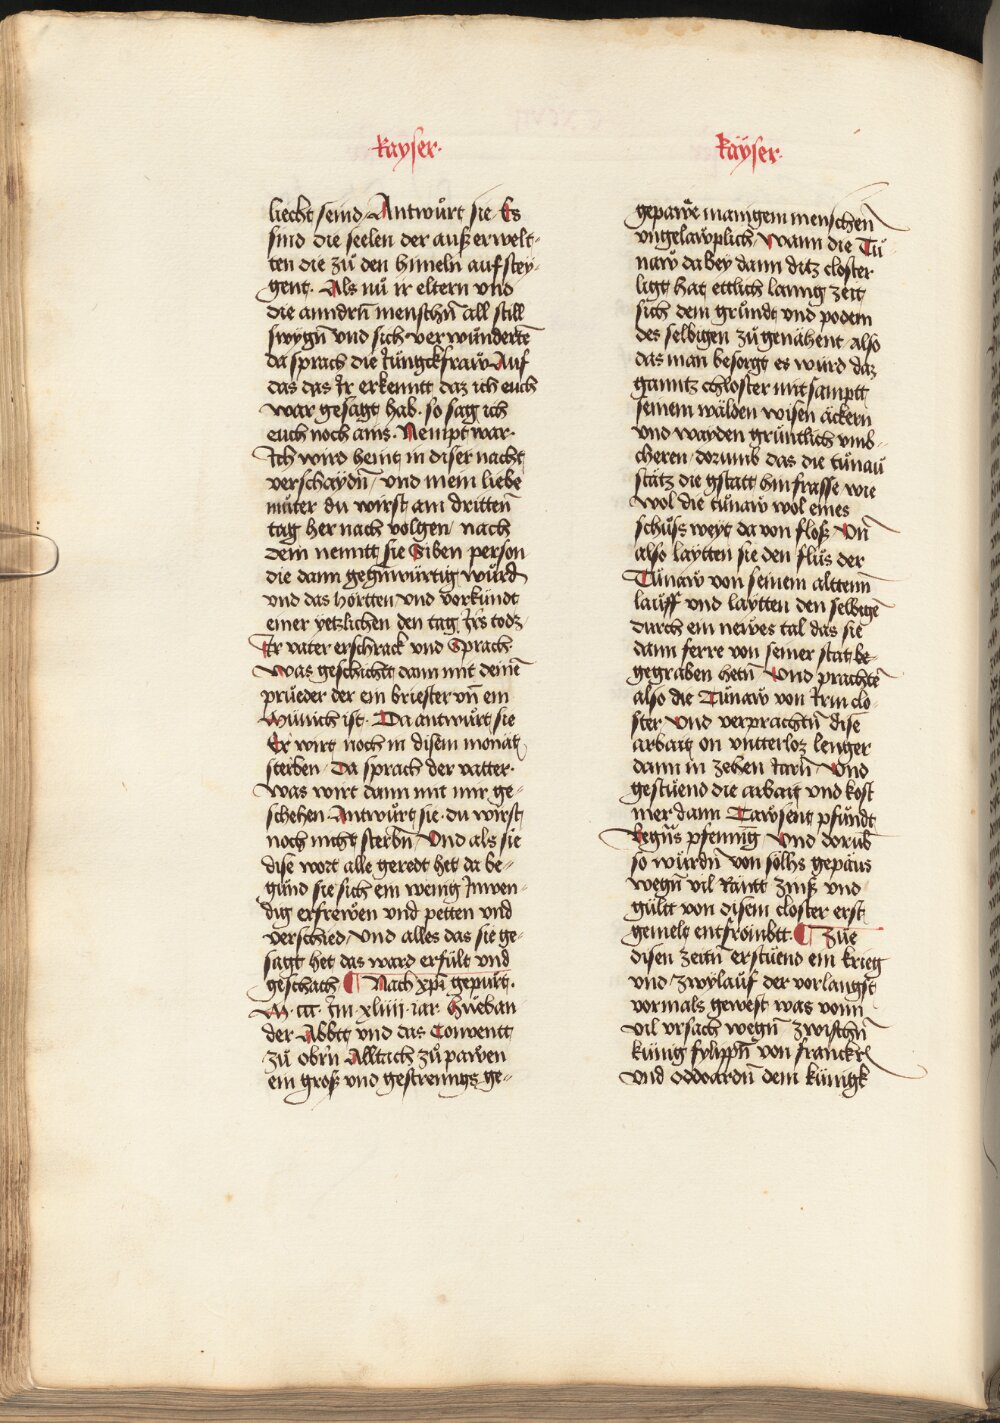 kayser.
liecht seind. Antwůrt sie. Es
sind die seelen der auß erwelt-
ten die zů den himeln auf stey-
gent. Als nů ir eltern vnd
die anndrn̄ menschn̄ all still
swygn̄ vnd sich verwůnderte͞
da sprach die Jůngckfraw Auf
das das Ir erkenntt daz ich euch
war gesagt hab. so sag ich
euch noch ains. Nempt war.
Ich wird heint in diser nacht
verschaydn̄, vnd mein liebe
můter du wirst am dritten̄
tag her nach volgen, nach
dem nenntt sie Siben person
die dann gegn̄würtig würd
vnd das hortten vnd verkündt
einer yetzlichen den tag Irs todz
Ir vater erschrack vnd Sprach.
Was geschicht dann mit deine͞
prüeder der ein briester vn̄ ein
Münich ist. Da antwůrt sie
Er wirt noch in disem monat
sterben, Da sprach der vatter.
Was wirt dann mit mir ge-
schehen. Antwůrt sie. du wirst
noch nicht sterbn̄, Vnd als sie
dise wort alle geredt het da be-
gund sie sich ein wenig Inwen-
dig erfrewen vnd petten vnd
verschied, vnd alles das sie ge-
sagt het das ward erfült vnd
geschach. ¶ Nach xp̄i gepůrt.
M. ccc. Im xliiii. iar. Hueban
der Abbtt vnd das Conventt
zů obrn Alltach zů pawen
ein groß vnd gestrenngs ge-
kaÿser.
pawe manigem menschen
vngelawplich, Wann die Tů-
naw da bey dann ditz closter
ligt hat ettlich lanng zeit
sich dem grůndt vnd podem
des selbigen zů genähent also
das man besorgt es würd daz
ganntz chloster mit samptt
seinem wälden wisen äckern
vnd wayden grüntlich vmb-
cheren, dorumb das die tůnaů
stätz die gstatt hin frasse wie
wol die tůnaw wol eines
schůss weyt da von floß. Vn̄
also laytten sie den flüs der
Tůnaw von seinem alttenn̄
lauff vnd laytten den selbige͞
durch ein newes tal das sie
dann ferre von seiner stat be-
gegraben hetn̄ Vnd prachte͞
also die Tůnaw von Irm clo-
ster Vnd verprachtn̄ dise
arbait on vntterloz lenger
dann in zehen Iarn̄, Vnd
gestüend die arbait vnd kost
mer dann Tawsent pfündt
Regn̄s pfenning Vnd dorub̄
so würdn̄ von sölhs gepäus
wegn̄ vil Räntt zinß vnd
gültt von disem closter erst
gemelt entfrömbtt. ¶ Zue
disen zeitn̄ erstüend ein krieg
vnd zwylauf der vor langst
vormals gewest was vonn
vil vrsach wegn̄ zwischn̄
künig fylippn̄ von franckr
vnd oddoardn̄ dem künigk